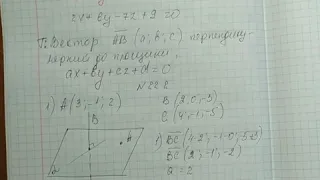 2x + 6y - 7z + 9 = 0
Т: Вектор AB (a; b; c) перпендику-
лярний до площини
ax + by + cz + d = 0
N222
1) A (3; -1; 2) B (2; 0; -3)
C (4; -1; -5)
B
A
1) BC
BC (2; -1; -2)
a = 2